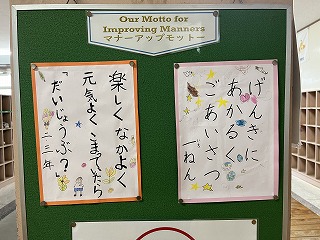 Our Motto for
Improving Manners
マナーアップモットー
楽しく なかよく
元気よく こまっていたら
「だいじょうぶ？」
二・三年
げんきに
あかるく
ごあいさつ
一ねん